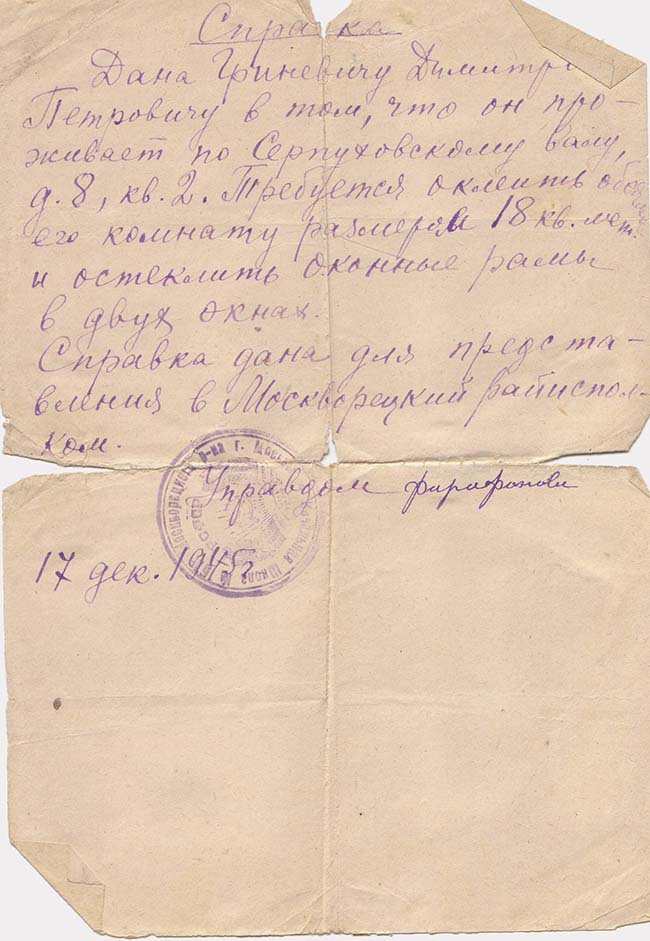 Справка
Дана Гриневичу Димитри
Петровичу в том, что он про-
живает по Серпуховскому валу,
д. 8, кв. 2. Требуется оклеить обоями
его комнату размером 18 кв. мет.
и остеклить оконные рамы
в двух окнах.
Справка дана для предста-
вления в Москворецкий райиспол-
ком.
Управдом
17 дек. 1945 г
Москворецкого р-на г. Москвы
школа №
РСФСР